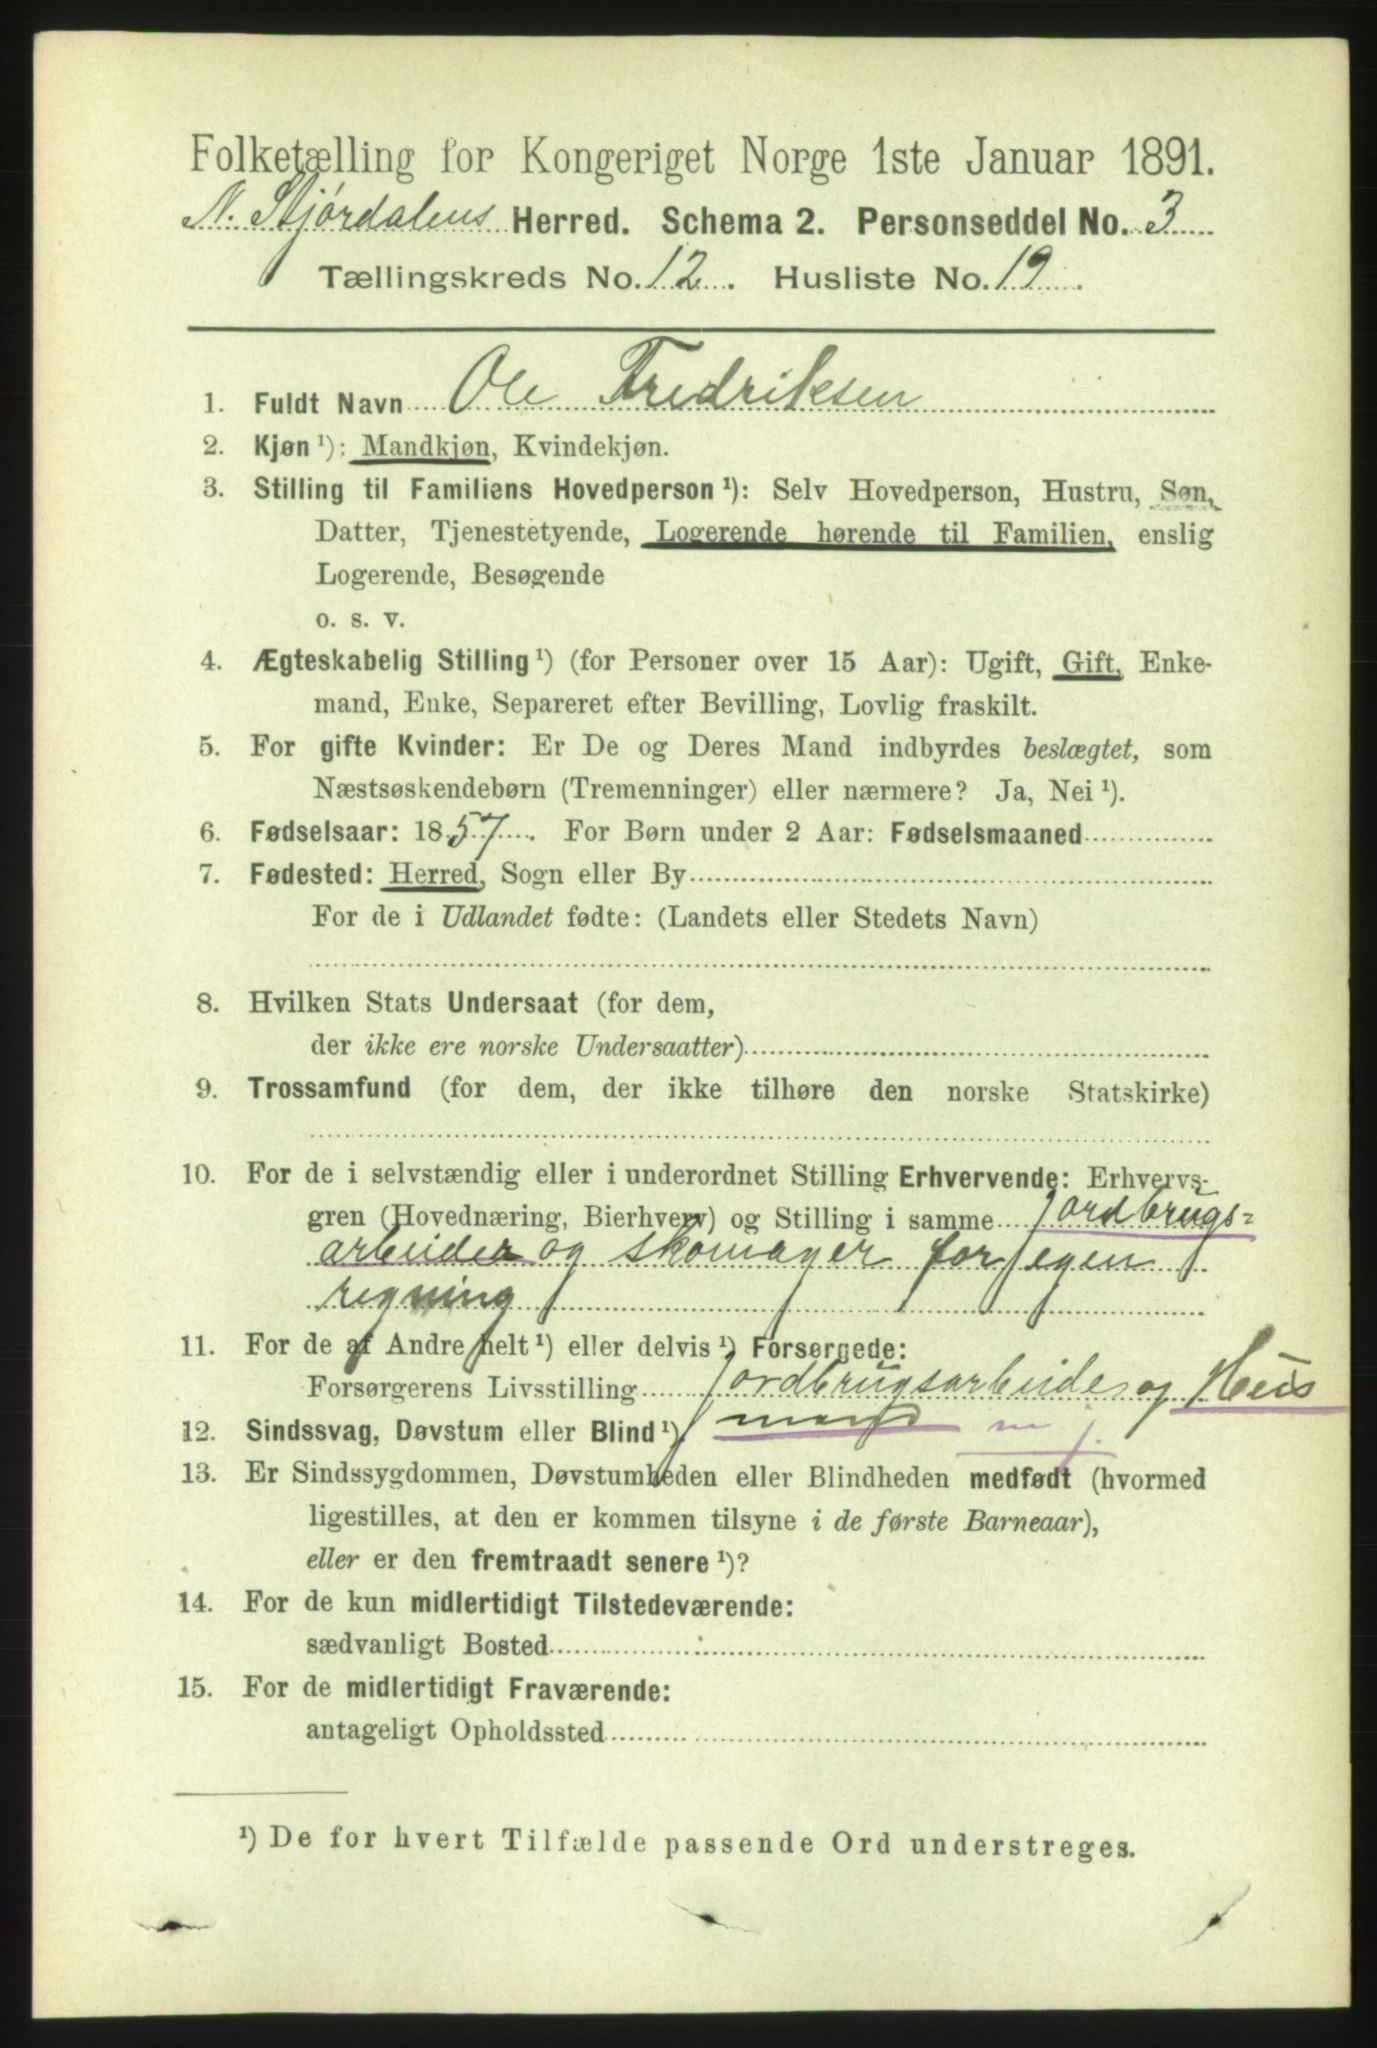 Folketælling for Kongeriget Norge 1ste Januar 1891.
N. Stjørdalens Herred. Schema 2. Personseddel No. 3
Tællingskreds No. 12. Husliste No. 19.
1. Fuldt Navn Ole Fredriksen
2. Kjøn ¹): Mandkjøn, Kvindekjøn.
3. Stilling til Familiens Hovedperson ¹): Selv Hovedperson, Hustru, Søn,
Datter, Tjenestetyende, Logerende hørende til Familien, enslig
Logerende, Besøgende
o. s. v.
4. Ægteskabelig Stilling ¹) (for Personer over 15 Aar): Ugift, Gift, Enke-
mand, Enke, Separeret efter Bevilling, Lovlig fraskilt.
5. For gifte Kvinder: Er De og Deres Mand indbyrdes beslægtet, som
Næstsøskendebørn (Tremenninger) eller nærmere? Ja, Nei ¹).
6. Fødselsaar: 1857. For Børn under 2 Aar: Fødselsmaaned
7. Fødested: Herred, Sogn eller By
For de i Udlandet fødte: (Landets eller Stedets Navn)
8. Hvilken Stats Undersaat (for dem,
der ikke ere norske Undersaatter)
9. Trossamfund (for dem, der ikke tilhøre den norske Statskirke)
10. For de i selvstændig eller i underordnet Stilling Erhvervende: Erhvervs-
gren (Hovednæring, Bierhverv) og Stilling i samme Jordbrugs=
arbeider og skomager for egen
regning
11. For de af Andre helt ¹) eller delvis ¹) Forsørgede:
Forsørgerens Livsstilling Jordbrugsarbeider og Huus
12. Sindssvag, Døvstum eller Blind ¹). mand
13. Er Sindssygdommen, Døvstumheden eller Blindheden medfødt (hvormed
ligestilles, at den er kommen tilsyne i de første Barneaar),
eller er den fremtraadt senere ¹)?
14. For de kun midlertidigt Tilstedeværende:
sædvanligt Bosted
15. For de midlertidigt Fraværende:
antageligt Opholdssted
¹) De for hvert Tilfælde passende Ord understreges.